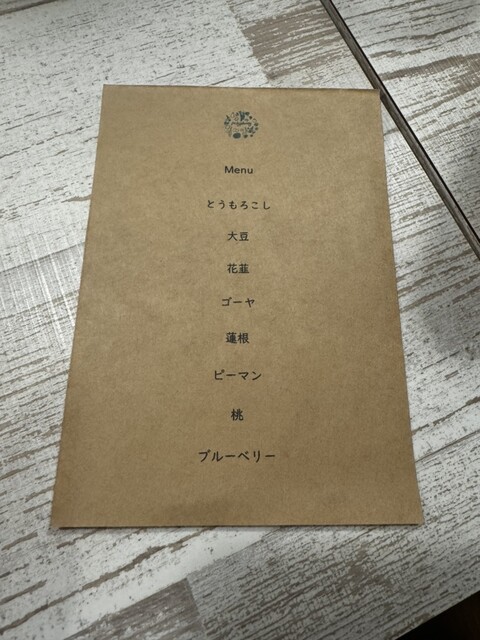 Menu
とうもろこし
大豆
花韮
ゴーヤ
蓮根
ピーマン
桃
ブルーベリー